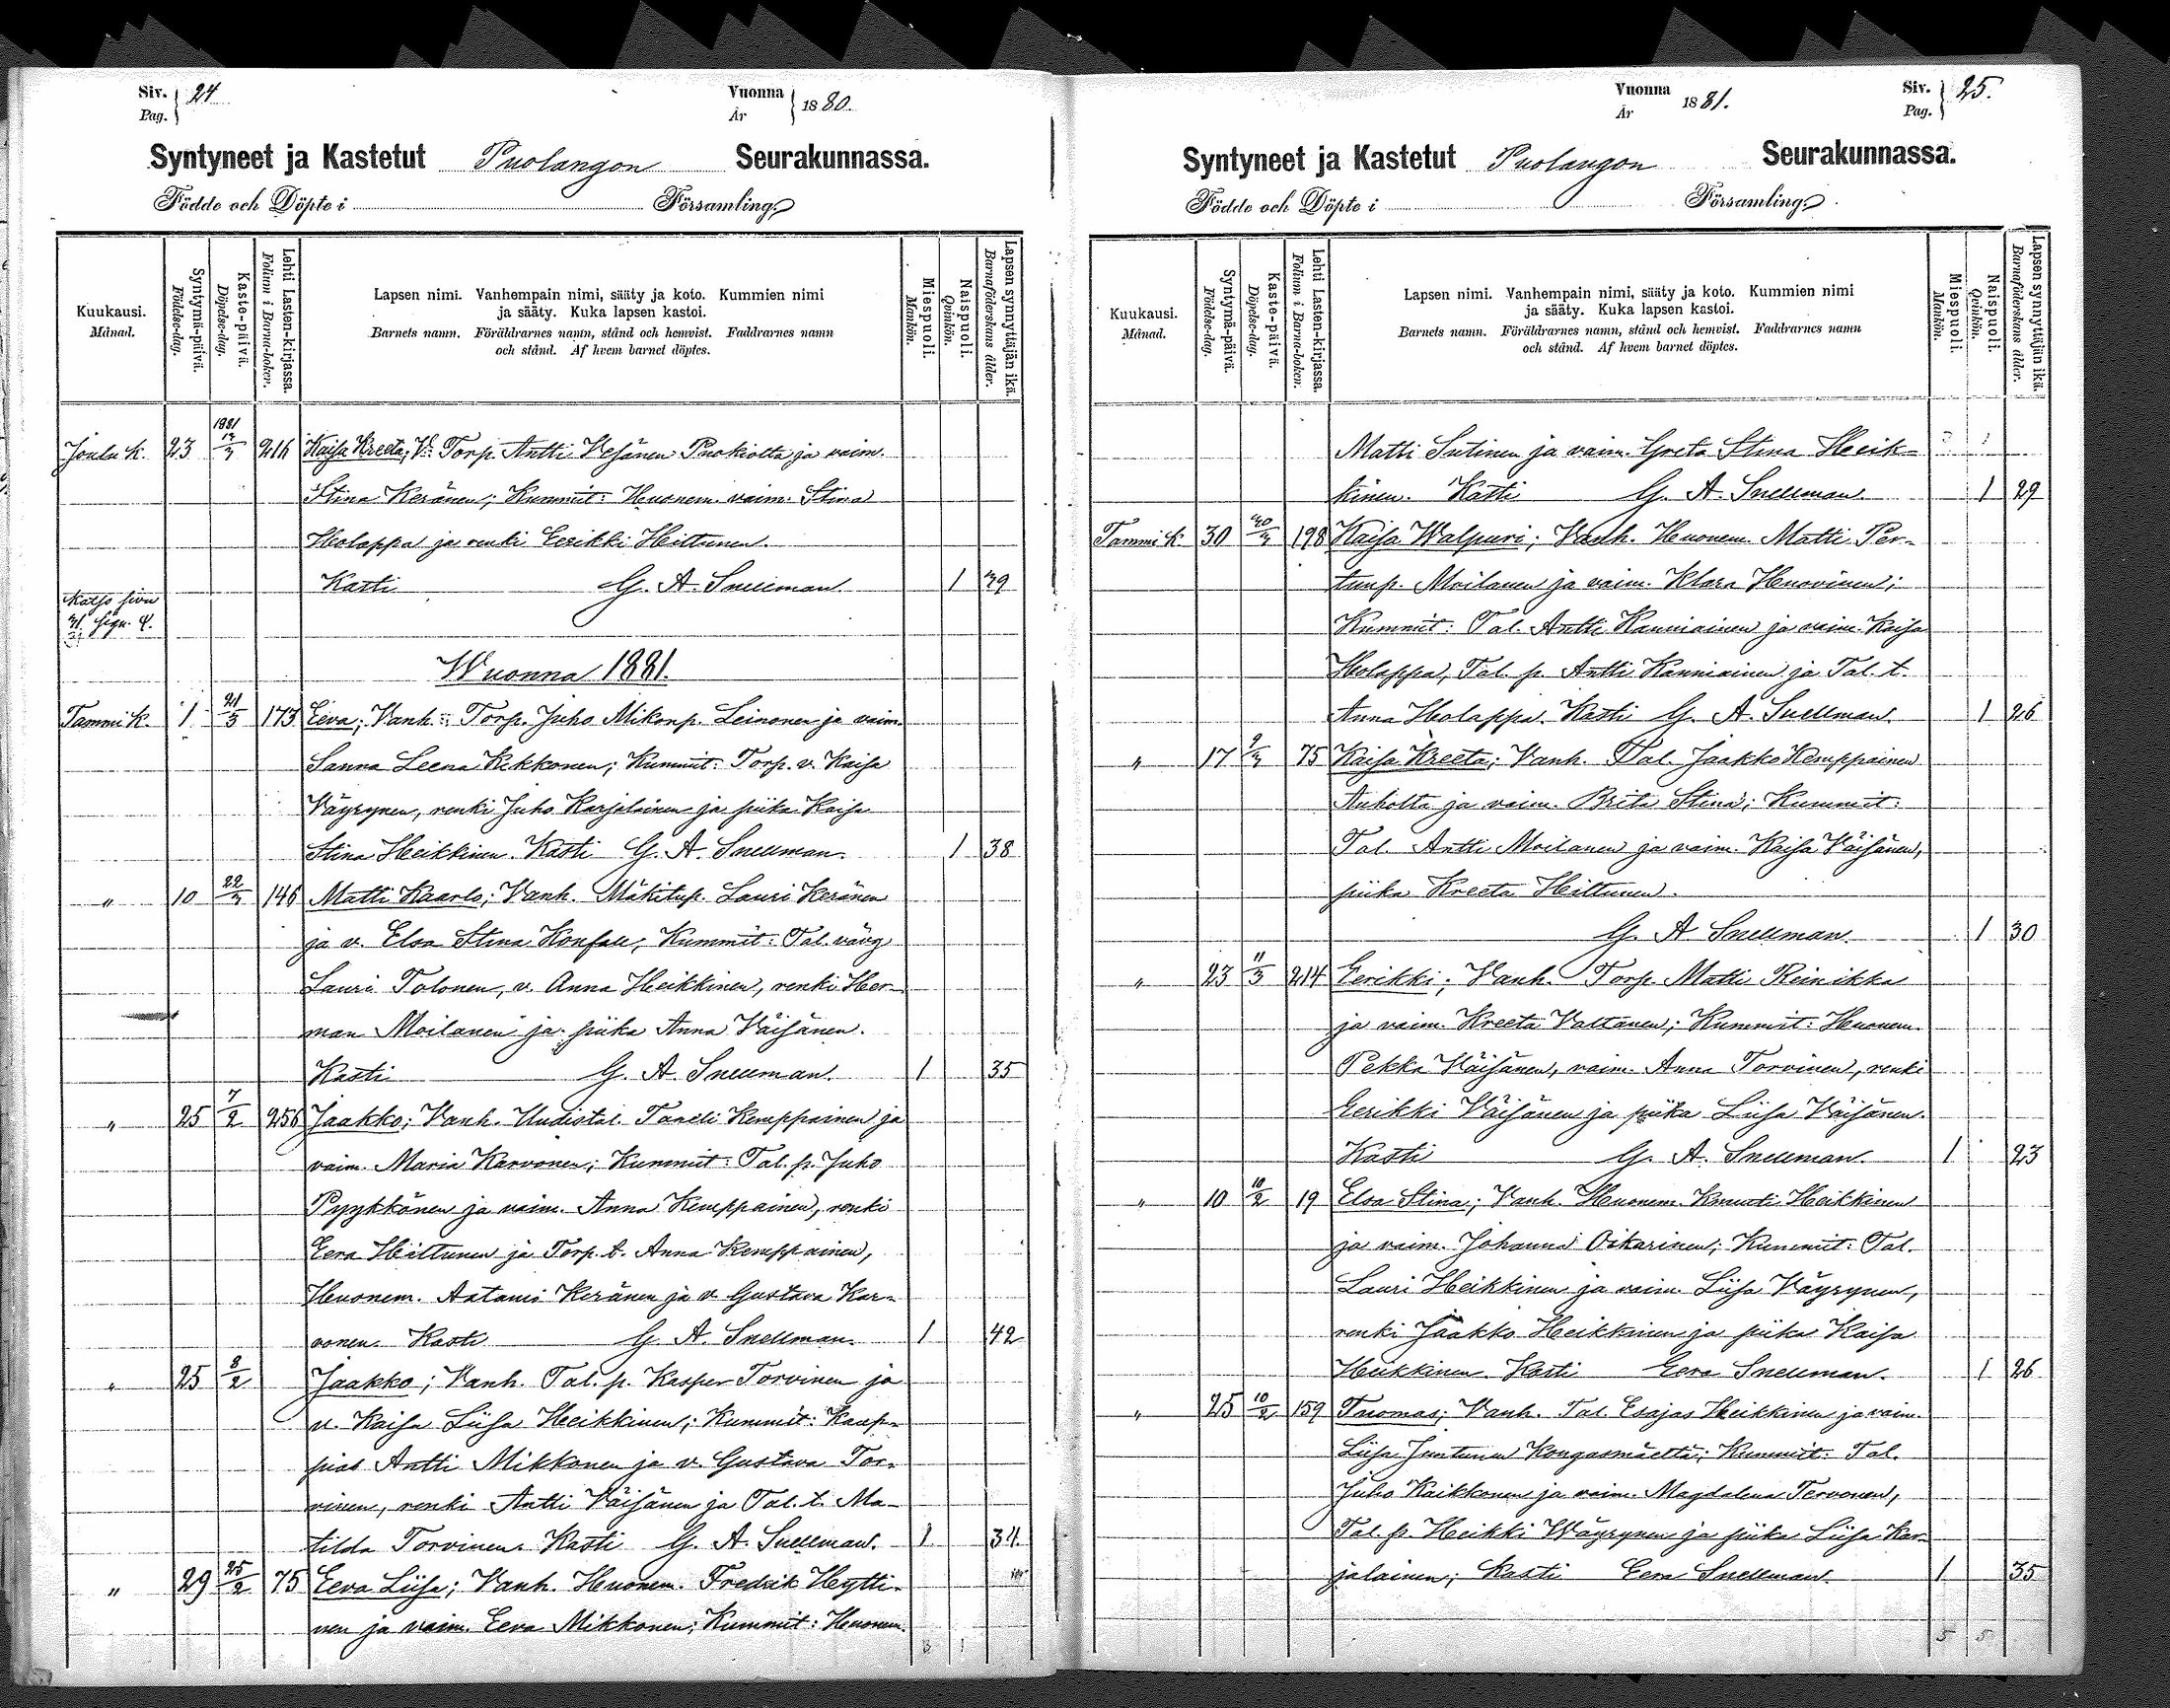 Siv. Pag. 24
Vuonna År 1880.
Syntyneet ja Kastetut Puolangon Seurakunnassa.
Födde och Döpte i Församling.
Kuukausi. Månad.
Syntymä-päivä. Födelse-dag.
Kaste-päivä. Döpelse-dag.
Lehti Lasten-kirjassa. Folium i Barna-boken.
Lapsen nimi. Vanhempain nimi, sääty ja koto. Kummien nimi
ja sääty. Kuka lapsen kastoi.
Barnets namn. Föräldrarnes namn, stånd och hemvist. Faddrarnes namn
och stånd. Af hvem barnet döptes.
Miespuoli. Mankön.
Naispuoli. Qvinkön.
Lapsen synnyttäjän ikä. Barnaföderskans ålder.
1881
Joulu k. 23 216 Kaisa Kreeta; V: Torp. Antti Vesänen Puokiolta ja vaim.
Stina Keränen; Kummit: Huonem. vaim. Stina
Holappa ja renki Eerikki Hiltunen.
Kasti G. A. Snellman. 1 39
Katso sivu
31. sign.
Wuonna 1881.
Tammi k. 1 173 Eeva; Vanh.: Torp. Juho Mikonp. Leinonen ja vaim.
Sanna Leena Kekkonen; Kummit: Torp. v. Kaisa
Väyrynen, renki Juho Karjalainen ja piika Kaisa
Stina Heikkinen. Kasti G. A. Snellman. 1 38
" 10 22/3 146 Matti Kaarlo; Vanh. Mäkitup. Lauri Keränen
ja v. Elsa Stina Konfall; Kummit: Tal. vävy
Lauri Tolonen, v. Anna Heikkinen, renki Her-
man Moilanen ja piika Anna Väisänen.
Kasti G. A. Snellman. 1 35
" 25 7/2 256 Jaakko; Vanh. Uudistal. Taneli Kemppainen ja
vaim. Maria Karvonen; Kummit: Tal. p. Juho
Pyykkönen ja vaim. Anna Kemppainen, renki
Eera Hiltunen ja Torp. t. Anna Kemppainen,
Huonem. Aatami Keränen ja v. Gustava Kar-
vonen. Kasti G. A. Snellman. 1 42
" 25 8/2 Jaakko; Vanh. Tal. p. Kasper Torvinen ja
v. Kaisa Liisa Heikkinen; Kummit: Kaup-
pias Antti Mikkonen ja v. Gustava Tor-
vinen, renki Antti Väisänen ja Tal. t. Ma-
tilda Torvinen. Kasti G. A. Snellman. 1 34
" 29 25/2 75 Eeva Liisa; Vanh. Huonem. Fredrik Heytti-
nen ja vaim. Eeva Mikkonen; Kummit: Huonem.
Vuonna År 1881.
Siv. Pag. 25.
Syntyneet ja Kastetut Puolangon Seurakunnassa.
Födde och Döpte i Församling.
Kuukausi. Månad.
Syntymä-päivä. Födelse-dag.
Kaste-päivä. Döpelse-dag.
Lehti Lasten-kirjassa. Folium i Barna-boken.
Lapsen nimi. Vanhempain nimi, sääty ja koto. Kummien nimi
ja sääty. Kuka lapsen kastoi.
Barnets namn. Föräldrarnes namn, stånd och hemvist. Faddrarnes namn
och stånd. Af hvem barnet döptes.
Miespuoli. Mankön.
Naispuoli. Qvinkön.
Lapsen synnyttäjän ikä. Barnaföderskans ålder.
Matti Sutinen ja vaim. Greta Stina Heik-
kinen. Kasti G. A. Snellman. 1 29
Tammi k. 30 30/3 198 Kaisa Walpuri; Vanh. Huonem. Matti Per-
tunp. Moilanen ja vaim. Klara Huovinen;
Kummit: Tal. Antti Kanniainen ja vaim. Kaisa
Holappa, Tal. p. Antti Kanniainen ja Tal. t.
Anna Holappa. Kasti G. A. Snellman. 1 26
" 17 9/3 75 Kaisa Kreeta; Vanh. Tal. Jaakko Kemppainen
Auholta ja vaim. Brita Stina; Kummit:
Tal. Antti Moilanen ja vaim. Kaisa Väisänen,
piika Kreeta Hiltunen.
G. A. Snellman. 1 30
" 23 11/3 214 Eerikki; Vanh. Torp. Matti Reinikka
ja vaim. Kreeta Valtanen; Kummit: Huonem.
Pekka Väisänen, vaim. Anna Torvinen, renki
Eerikki Väisänen ja piika Liisa Väisänen.
Kasti G. A. Snellman. 1 23
" 10 10/2 19 Elsa Stina; Vanh. Huonem. Knuuti Heikkinen
ja vaim. Johanna Oikarinen; Kummit: Tal.
Lauri Heikkinen ja vaim. Liisa Väyrynen,
renki Jaakko Heikkinen ja piika Kaisa
Heikkinen. Kasti Eera Snellman. 1 26
" 25 10/2 159 Tuomas; Vanh. Tal. Esajas Heikkinen ja vaim.
Liisa Juntunen Kongasmäeltä; Kummit: Tal.
Juho Kaikkonen ja vaim. Magdalena Tervonen,
Tal. p. Heikki Wäyrynen ja piika Liisa Kar-
jalainen; Kasti Eera Snellman. 1 35
5 5